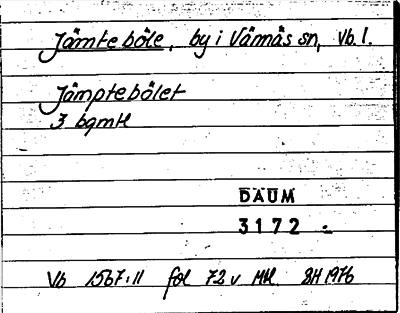 Jämteböle, by i Vännäs sn, Vb. l.
Jämptebölet
3 bgmtl
DAUM
3172
Vb 1567:11 fol 72 v Mtl. SH 1976